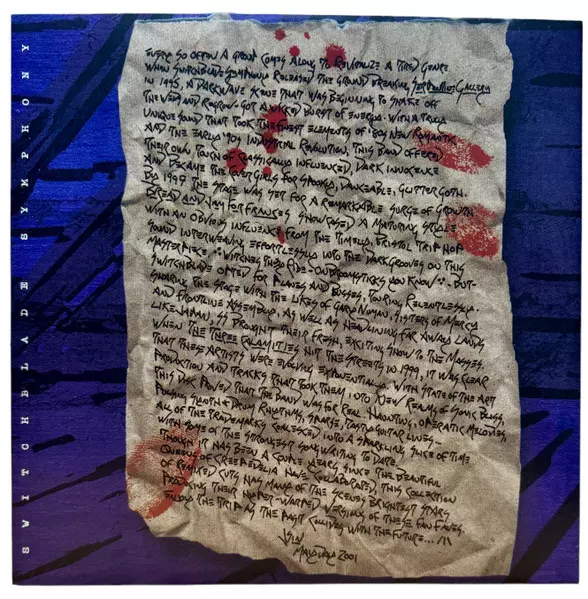 SWITCHBLADE SYMPHONY
EVERY SO OFTEN A GROUP COMES ALONG TO REVITALIZE A TIRED GENRE
WHEN SWITCHBLADE SYMPHONY RELEASED THE GROUND BREAKING SERPENTINE GALLERY
IN 1995, A DARKWAVE SCENE THAT WAS BEGINNING TO SHAKE OFF
THE VEIS AND REGROW, GOT A WICKED BURST OF ENERGY. WITH A TRULY
UNIQUE SOUND THAT TOOK THE FINEST ELEMENTS OF '80S NEW ROMANTIC
AND THE EARLY '90S INDUSTRIAL REVOLUTION, THIS BAND OFFERED
THEIR OWN TOUCH OF CLASSICALLY INFLUENCED DARK INNOCENCE
AND BECAME THE COVER GIRLS FOR SPOOKY, DANCEABLE, GUTTER GOTH.
BY 1997 THE STAGE WAS SET FOR A REMARKABLE SURGE OF GROWTH
BREAD AND JAM FOR FRANCES SHOWCASED A MATURING STYLE
WITH AN OBVIOUS INFLUENCE FROM THE TIMELY, BRISTOL TRIP HOP
SOUND INTERWEAVING EFFORTLESSLY INTO THE DARK GROOVES ON THIS
MASTERPIECE. WITCHES THEY FIVE-OUD BROOMSTICKS YOU KNOW. BUT
SWITCHBLADE OPTED FOR PLANES AND BUSSES, TOURING RELENTLESSLY.
SHARING THE STAGE WITH THE LIKES OF GARY NUMAN, SISTERS OF MERCY
AND FRONTLINE ASSEMBLY. AS WELL AS HEADLINING FAR AWAY LANDS
LIKE JAPAN, SS BROUGHT THEIR FRESH EXCITING SHOW TO THE MASSES.
WHEN THE THREE CALAMITIES HIT THE STREETS IN 1999, IT WAS CLEAR
THAT THESE ARTISTS WERE EVOLVING EXPONENTIALLY. WITH STATE OF THE ART
PRODUCTION AND TRACKS THAT TOOK THEM INTO NEW REALMS OF SONIC BLISS,
THIS DISC PROVED THAT THE BAND WAS FOR REAL. HAUNTING, OPERATIC MELODIES,
PULSING SYNTH & DRUM RHYTHMS, SPARSE, TASTY GUITAR LINES-
ALL OF THE TRADEMARKS COALESCED INTO A SPARKLING SLICE OF TIME
WITH SOME OF THE STRONGEST SONGWRITING TO DATE.
THOUGH IT HAS BEEN A COUPLE YEARS SINCE THE BEAUTIFUL
QUEENS OF CREEPADELIA HAVE COLLABORATED, THIS COLLECTION
OF REMIXED CUTS HAS MANY OF THE SCENES BRIGHTEST STARS
PROVIDING THEIR HYPER-WARPED VERSIONS OF THESE FAN FAVES.
ENJOY THE TRIP AS THE PAST COLLIDES WITH THE FUTURE...
2001